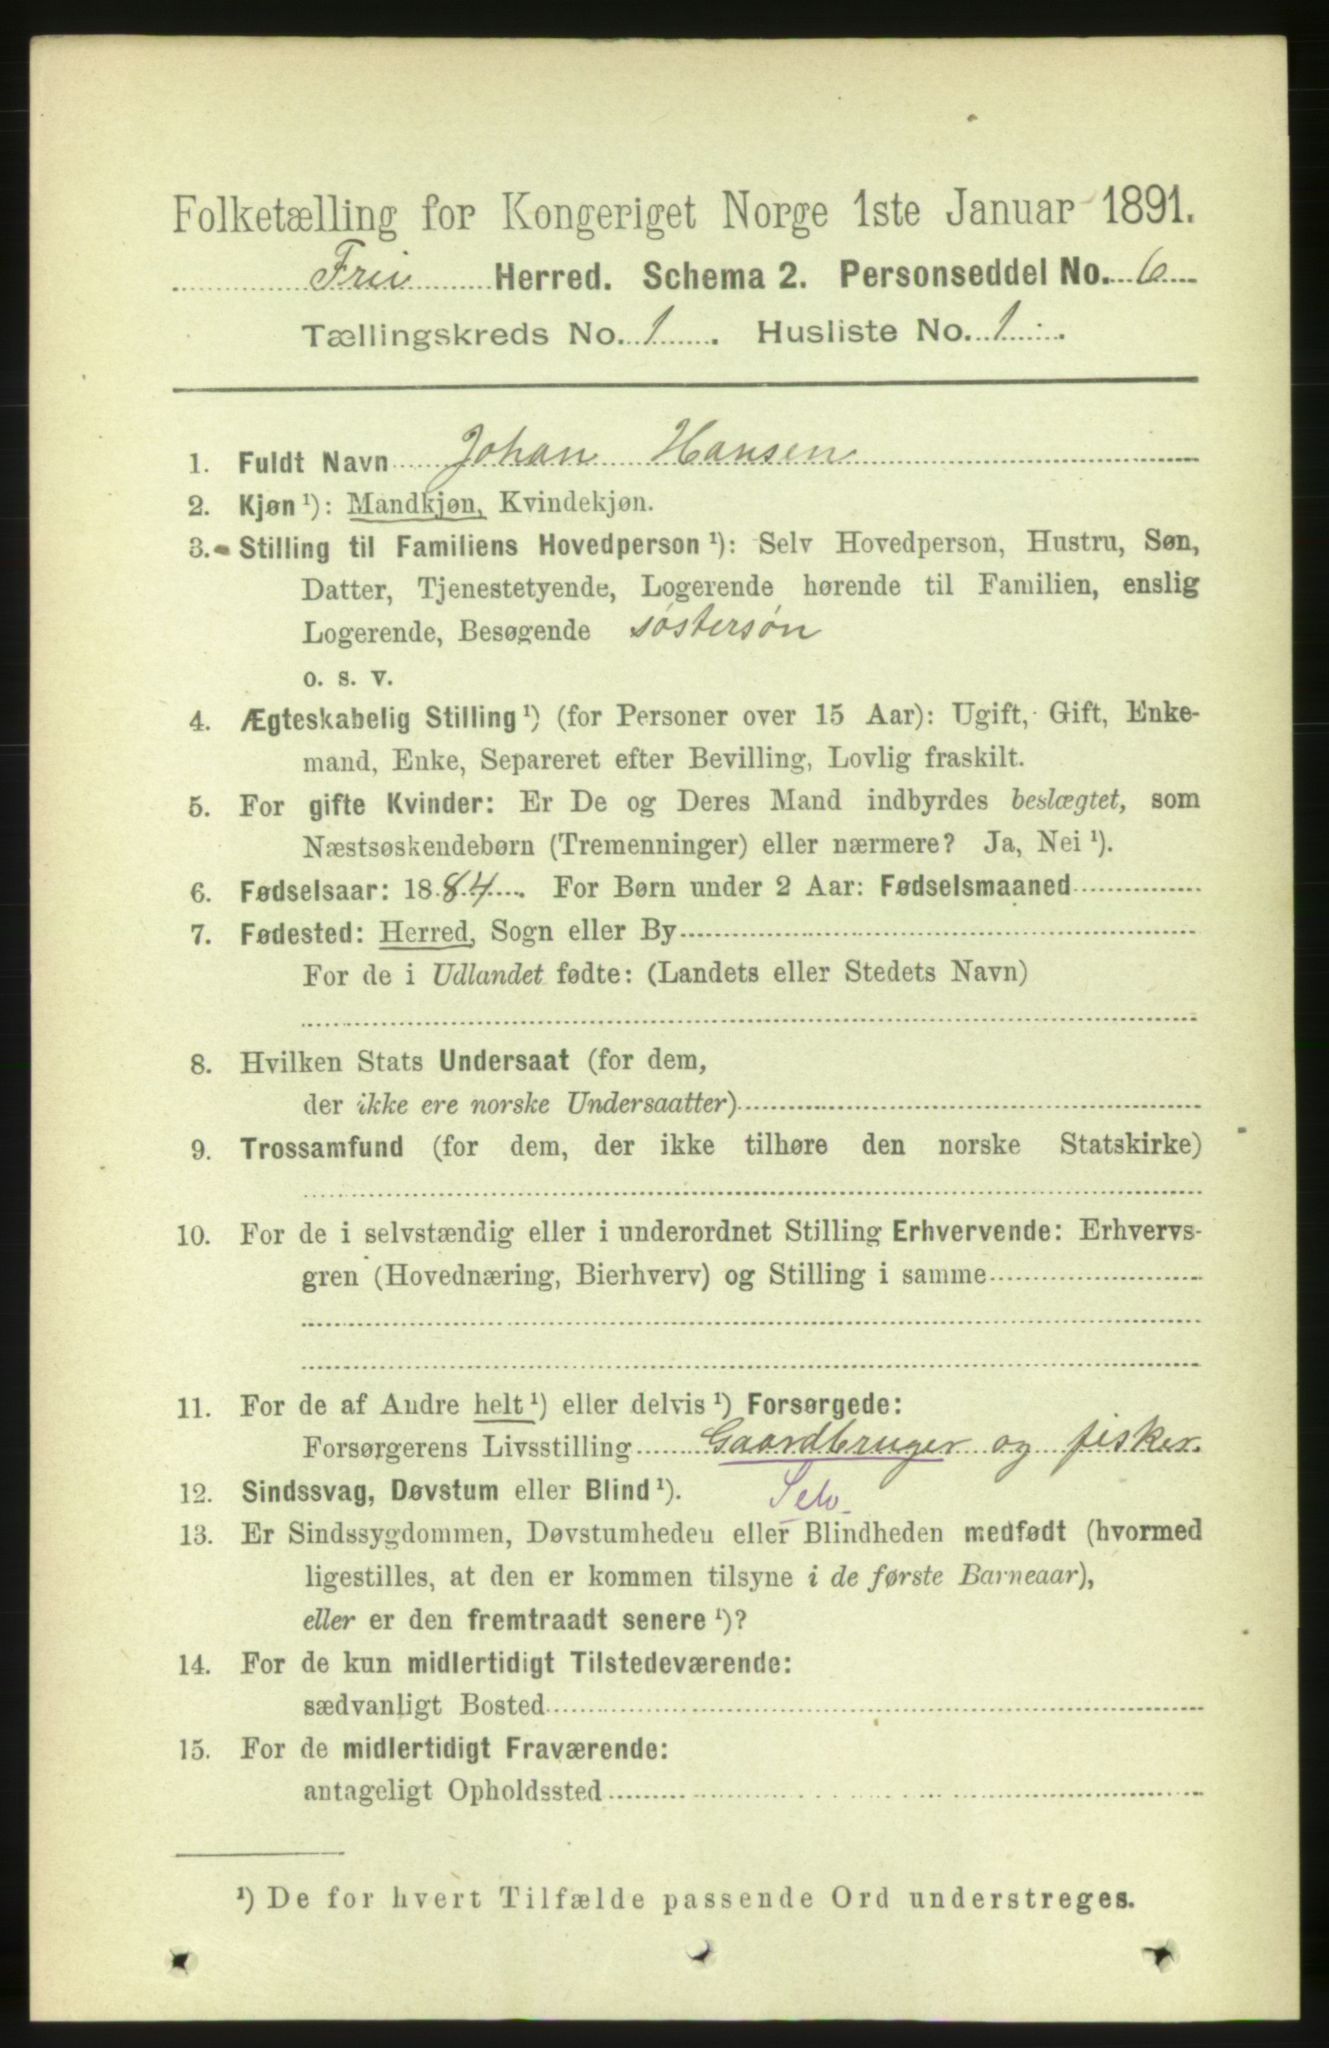 Folketælling for Kongeriget Norge 1ste Januar 1891.
Frei Herred. Schema 2. Personseddel No. 6
Tællingskreds No. 1. Husliste No. 1.
1. Fuldt Navn Johan Hansen
2. Kjøn ¹): Mandkjøn, Kvindekjøn.
3. Stilling til Familiens Hovedperson ¹): Selv Hovedperson, Hustru, Søn,
Datter, Tjenestetyende, Logerende hørende til Familien, enslig
Logerende, Besøgende søstersøn
o. s. v.
4. Ægteskabelig Stilling ¹) (for Personer over 15 Aar): Ugift, Gift, Enke-
mand, Enke, Separeret efter Bevilling, Lovlig fraskilt.
5. For gifte Kvinder: Er De og Deres Mand indbyrdes beslægtet, som
Næstsøskendebørn (Tremenninger) eller nærmere? Ja, Nei ¹).
6. Fødselsaar: 1884. For Børn under 2 Aar: Fødselsmaaned
7. Fødested: Herred, Sogn eller By
For de i Udlandet fødte: (Landets eller Stedets Navn)
8. Hvilken Stats Undersaat (for dem,
der ikke ere norske Undersaatter)
9. Trossamfund (for dem, der ikke tilhøre den norske Statskirke)
10. For de i selvstændig eller i underordnet Stilling Erhvervende: Erhvervs-
gren (Hovednæring, Bierhverv) og Stilling i samme
11. For de af Andre helt ¹) eller delvis ¹) Forsørgede:
Forsørgerens Livsstilling Gaardbruger og fisker.
12. Sindssvag, Døvstum eller Blind ¹). Selv.
13. Er Sindssygdommen, Døvstumheden eller Blindheden medfødt (hvormed
ligestilles, at den er kommen tilsyne i de første Barneaar),
eller er den fremtraadt senere ¹)?
14. For de kun midlertidigt Tilstedeværende:
sædvanligt Bosted
15. For de midlertidigt Fraværende:
antageligt Opholdssted
¹) De for hvert Tilfælde passende Ord understreges.